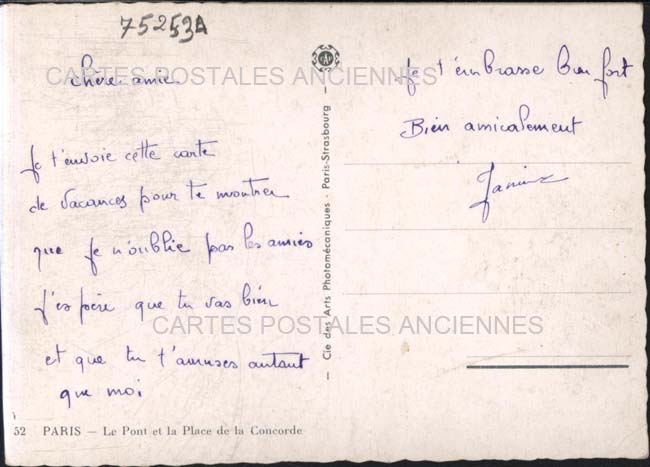 75253A
CARTES POSTALES ANCIENNES
Chère amie
Je t'envoie cette carte
de vacances pour te montrer
que je n'oublie pas les amies
j'espère que tu vas bien
CARTES POSTALES ANCIENNES
et que tu t'amuses autant
que moi
52 PARIS — Le Pont et la Place de la Concorde
— Cie des Arts Photomécaniques - Paris-Strasbourg —
CAP
Je t'embrasse bien fort
Bien amicalement
Janine